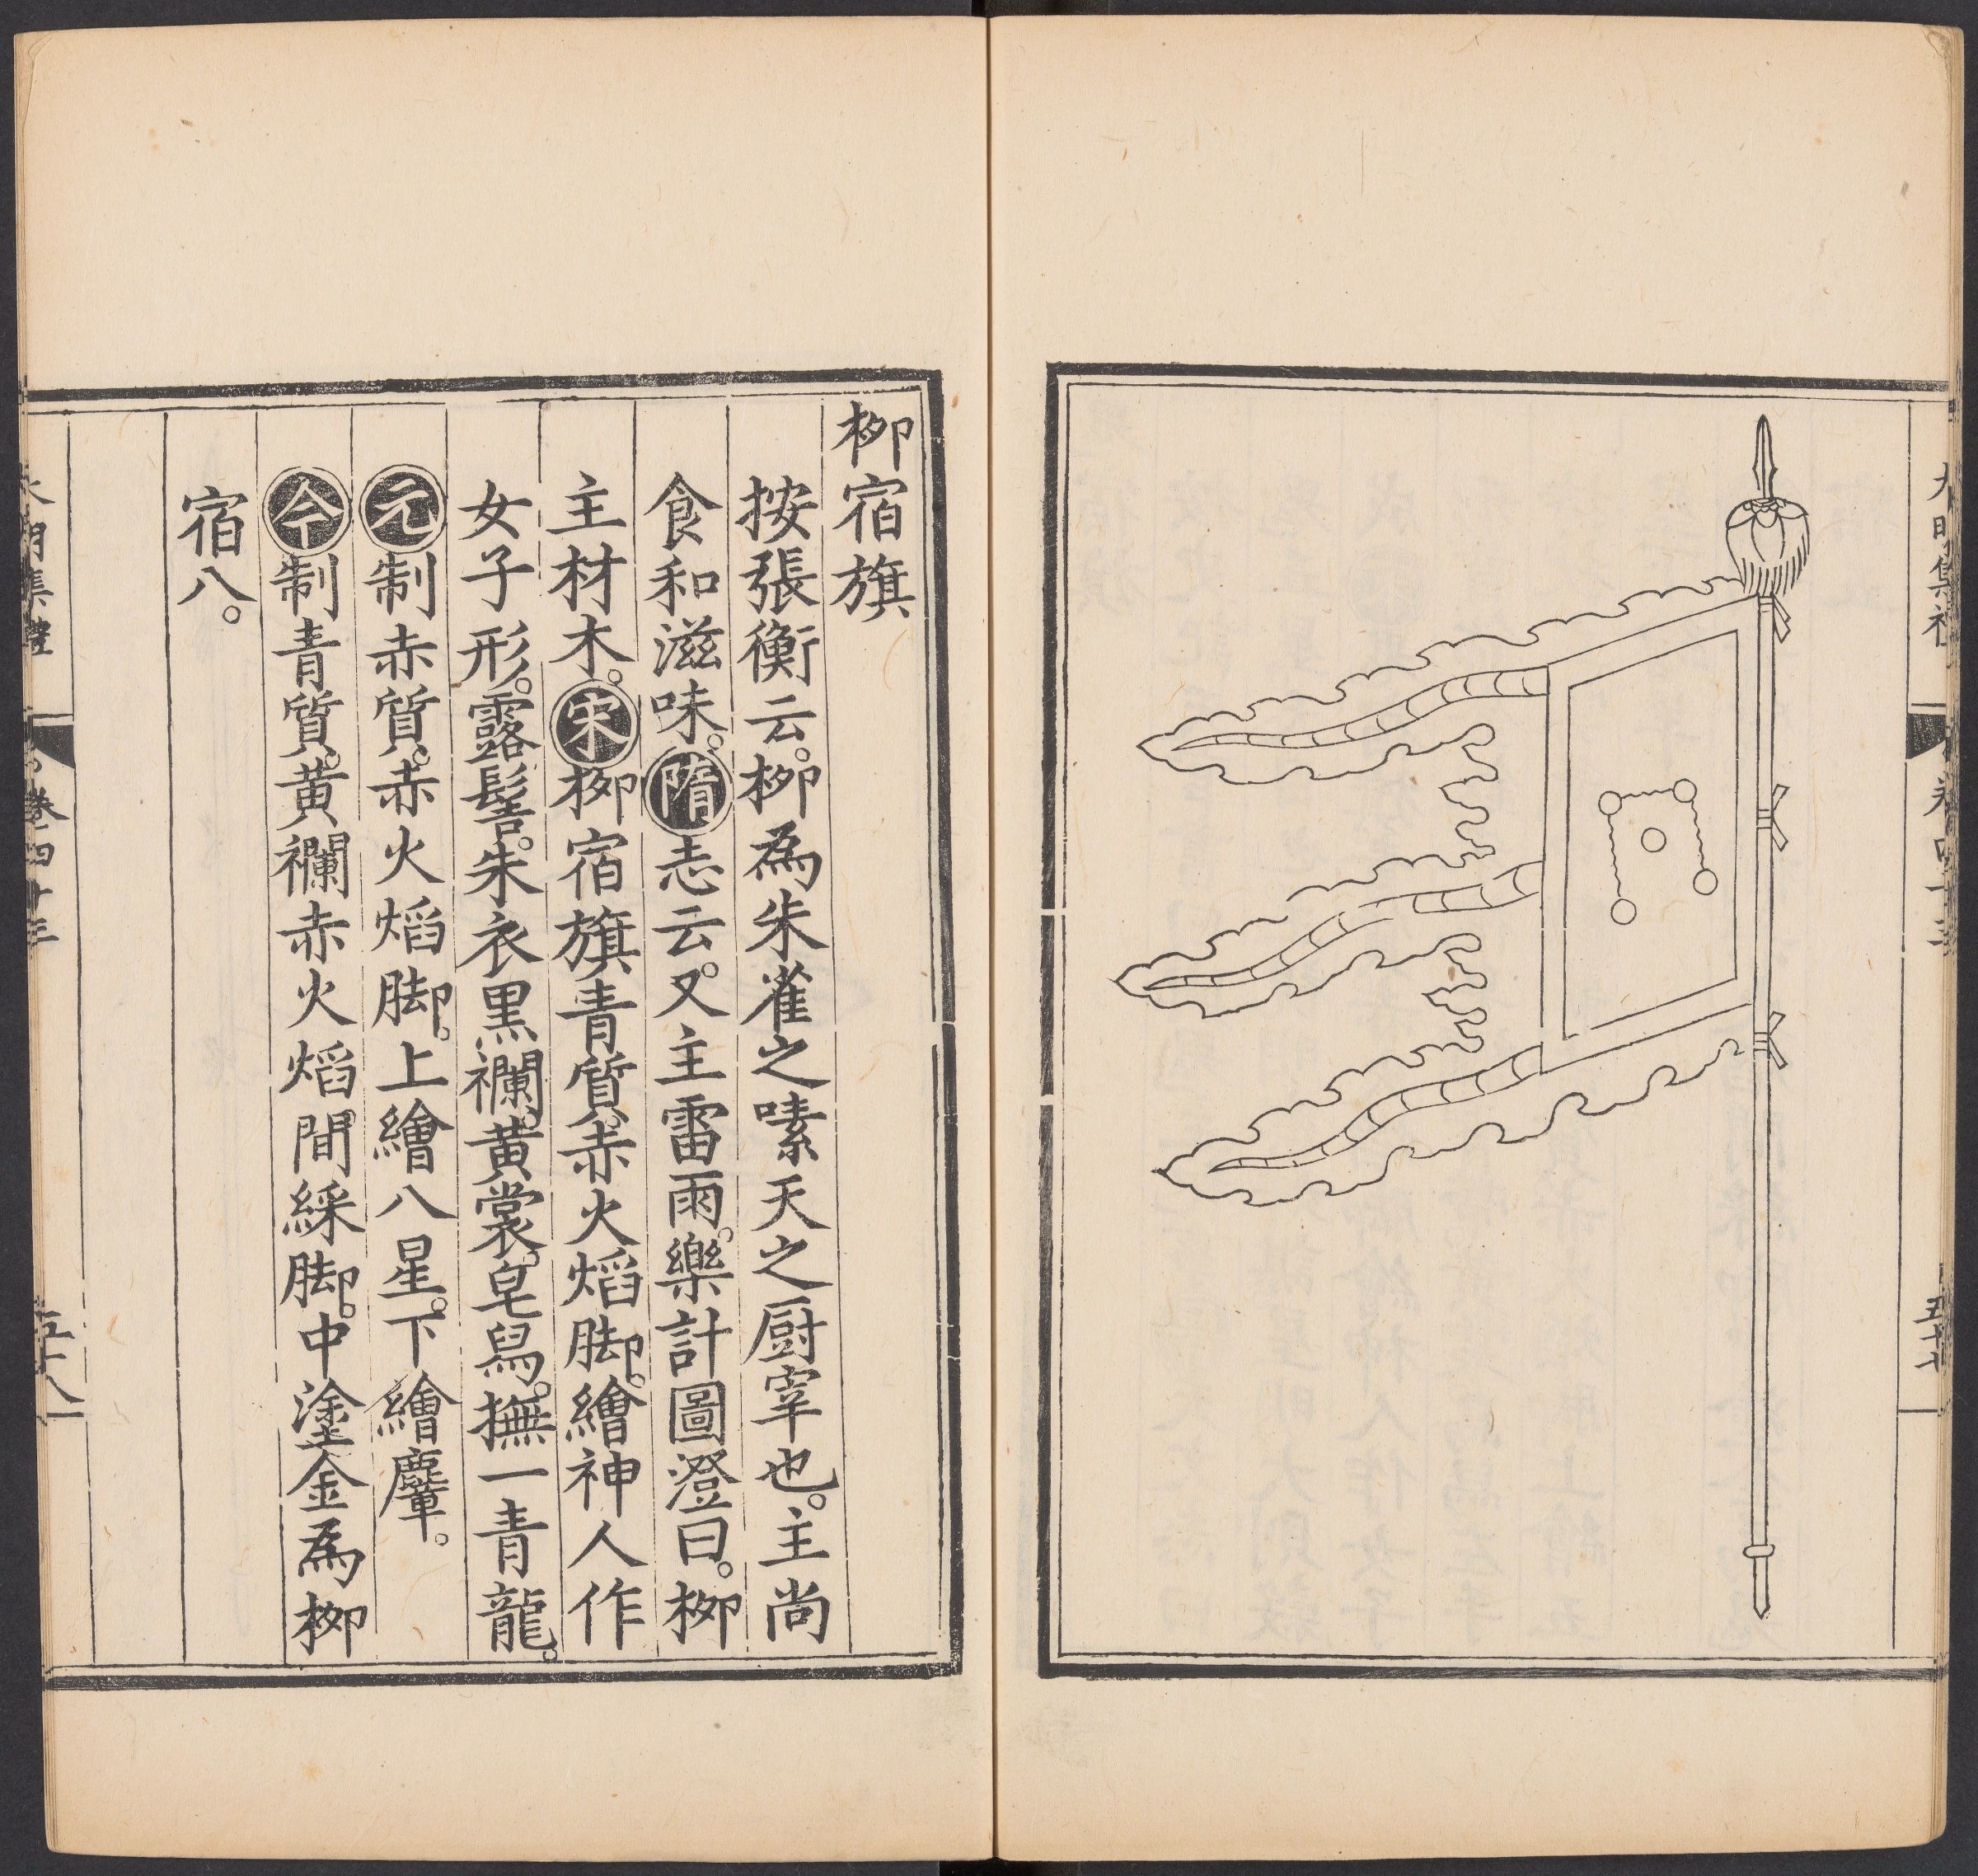 大明集禮
卷四十三
五十七
柳宿旗
按張衡云。柳為朱雀之嗉天之厨宰也。主尚
食和滋味。隋志云。又主雷雨。樂計圖澄曰。柳
主材木。宋柳宿旗青質。赤火焰脚。繪神人作
女子形。露髻。朱衣黒襴。黄裳。皂舄。撫一青龍。
元制赤質。赤火焰脚。上繪八星。下繪麞。
今制青質。黄襴赤火焰間綵脚。中塗金為柳
宿八。
大明集禮
卷四十三
五十八